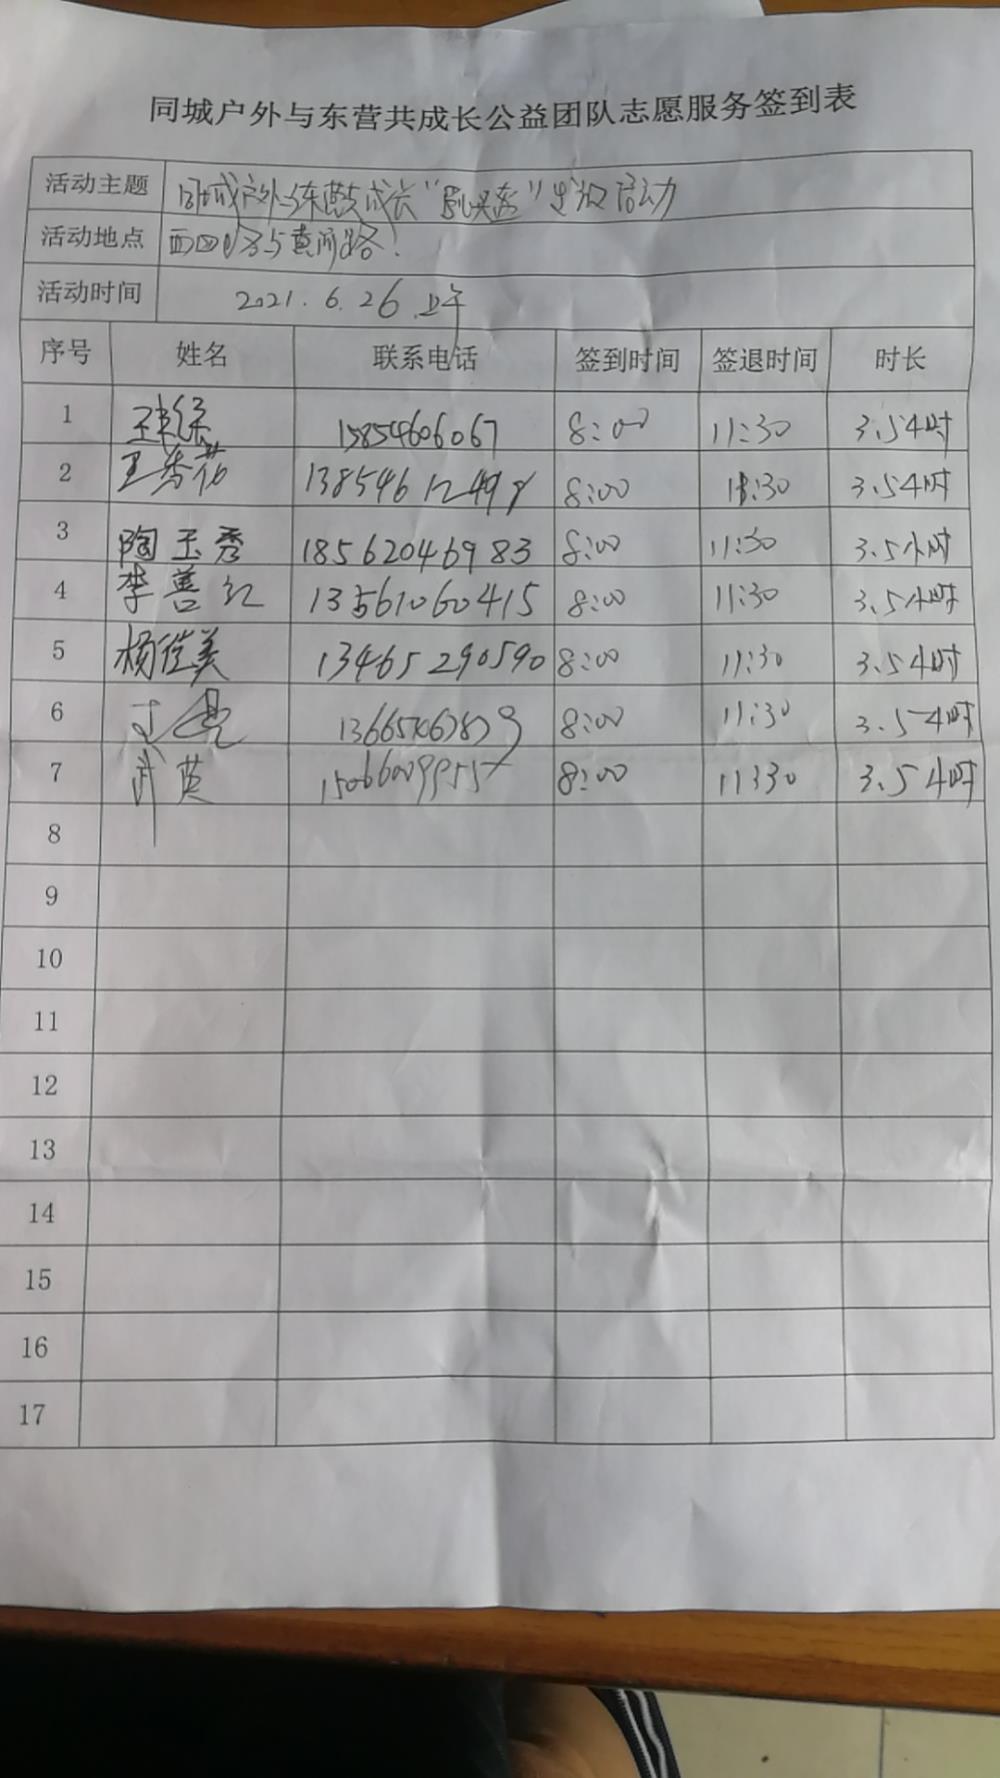 同城户外与东营共成长公益团队志愿服务签到表
活动主题 同城户外与东营共成长" "  活动
活动地点 西四路与黄河路
活动时间 2021.6.26 上午
序号 姓名 联系电话 签到时间 签退时间 时长
1 15854606067 8:00 11:30 3.5小时
2 王秀花 8:00 11:30 3.5小时
3 陶玉秀 18562046983 8:00 11:30 3.5小时
4 李善红 13561060415 8:00 11:30 3.5小时
5 杨佳美 13465290590 8:00 11:30 3.5小时
6 8:00 11:30 3.5小时
7 武英 8:00 11:30 3.5小时
8
9
10
11
12
13
14
15
16
17